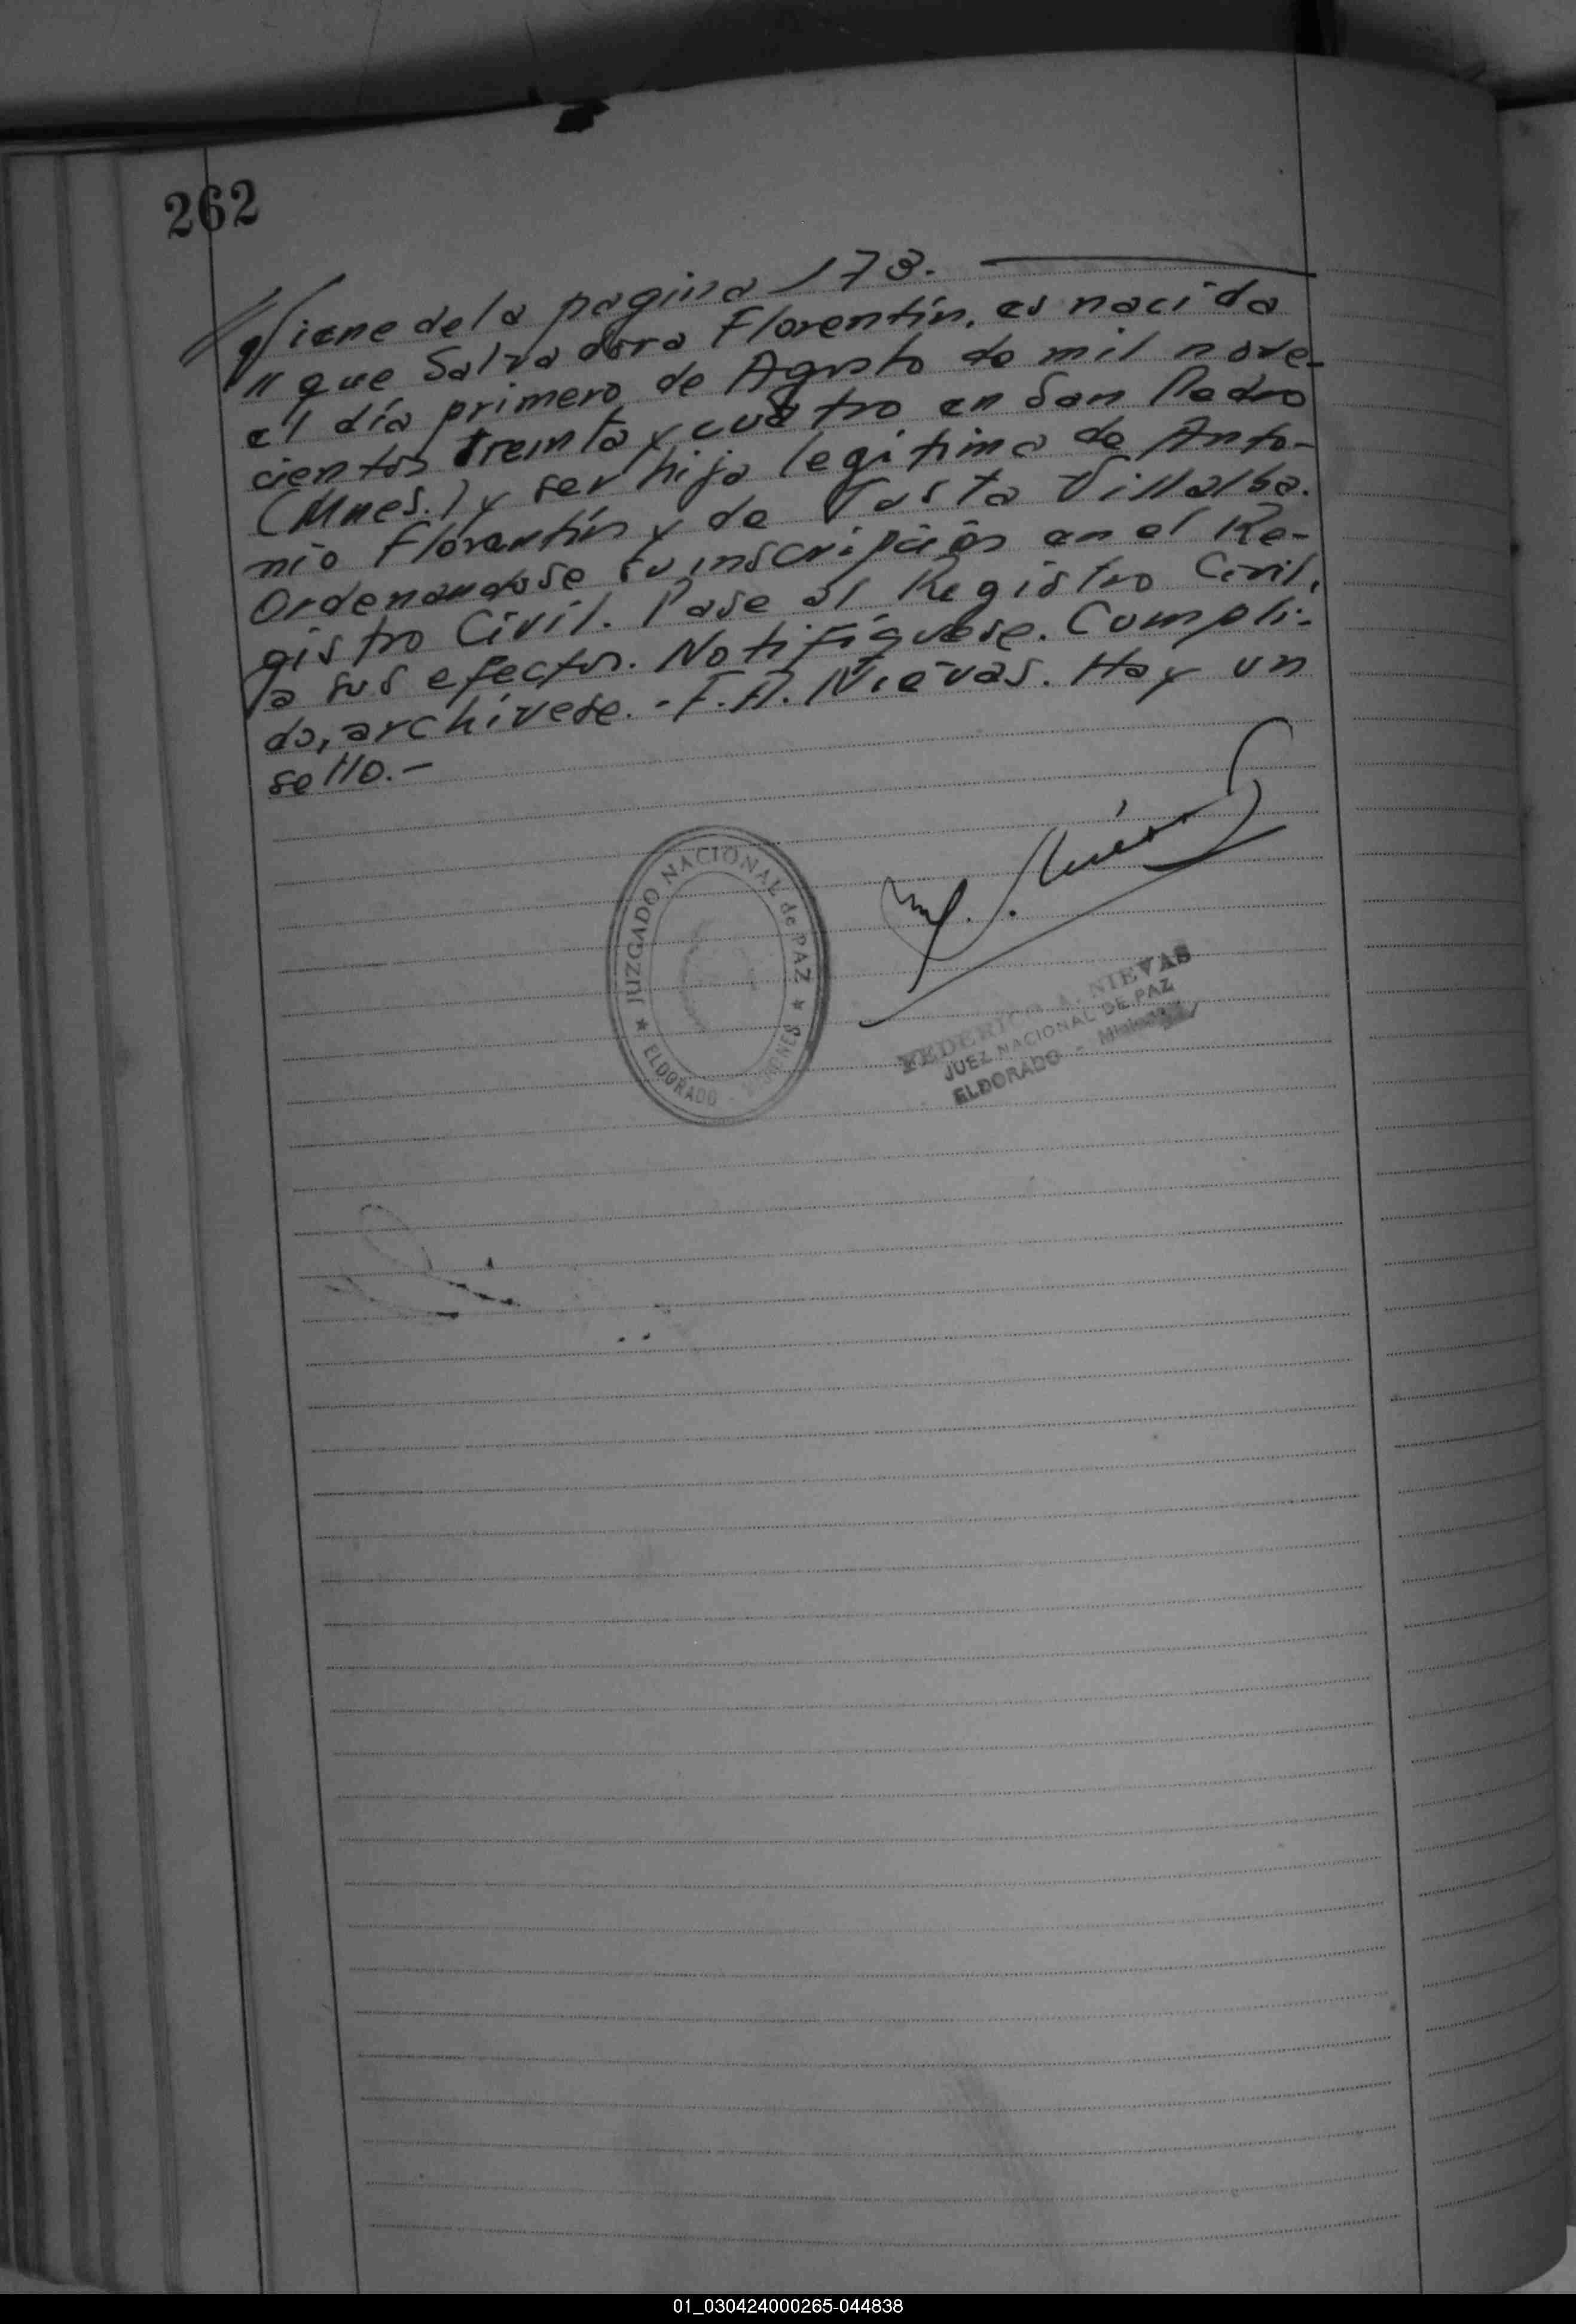 262
Viene de la pagina 173.
" que Salvadora Florentín, es nacida
el día primero de Agosto de mil nove-
cientos treinta y cuatro en San Pedro
(Mnes.) y ser hija legítima de Anto-
nio Florentín y de Justa Villalba.
Ordenandose su inscripción en el Re-
gistro Civil. Pase al Registro Civil,
a sus efectos. Notifíquese. Cumpli-
do, archívese.- F.A. Nievas. Hay un
sello.-
JUZGADO NACIONAL de PAZ
ELDORADO MISIONES
FEDERICO A. NIEVAS
JUEZ NACIONAL DE PAZ
ELDORADO - Misiones
01_030424000265-044838